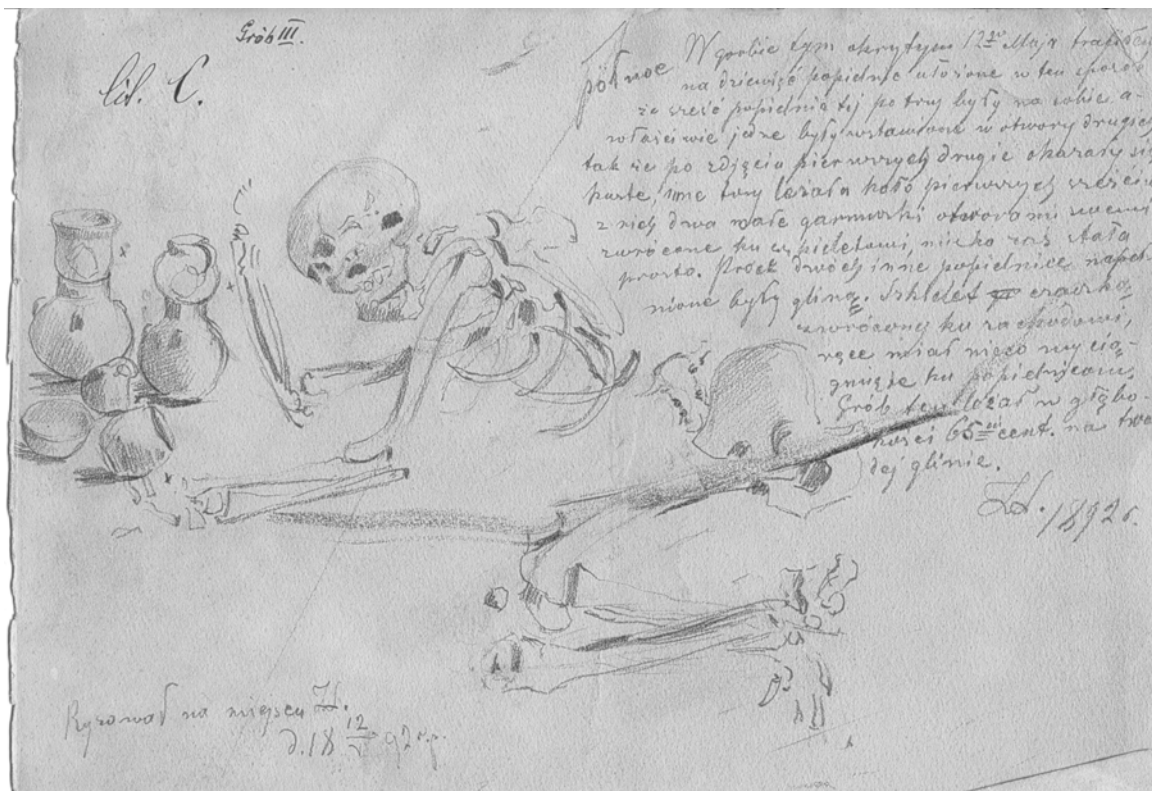 Grób III.
lit. C.
północ
W grobie tym okrytym 12go Maja trafiłem
na dziewięć popielnic ułożone w ten sposób
że sześć popielnic tej po trzy były na sobie a-
właściwie jedne były wstawione w otwory drugich
tak że po zdjęciu pierwszych drugie okazały się
puste, inne trzy leżała koło pierwszych sześciu
z nich dwa małe garnuszki otworami swemi
zwrócone ku szpieletowi, miska zaś stała
prosto. Prócz dwóch inne popielnice napeł-
nione były gliną. Szkielet czaszką
zwróconą ku zachodowi,
ręce miał nieco wycią-
gnięte ku popielnicom.
Grób ten leżał w głębo-
kości 65 cent. na twar
dej glinie.
1892 r.
Rysował na miejscu
d. 18 12/V 92 r.